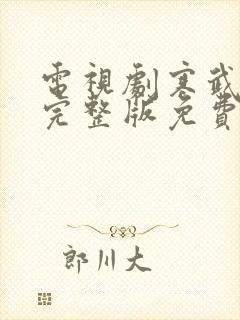 電視劇寒武
完整版免費
郎川大